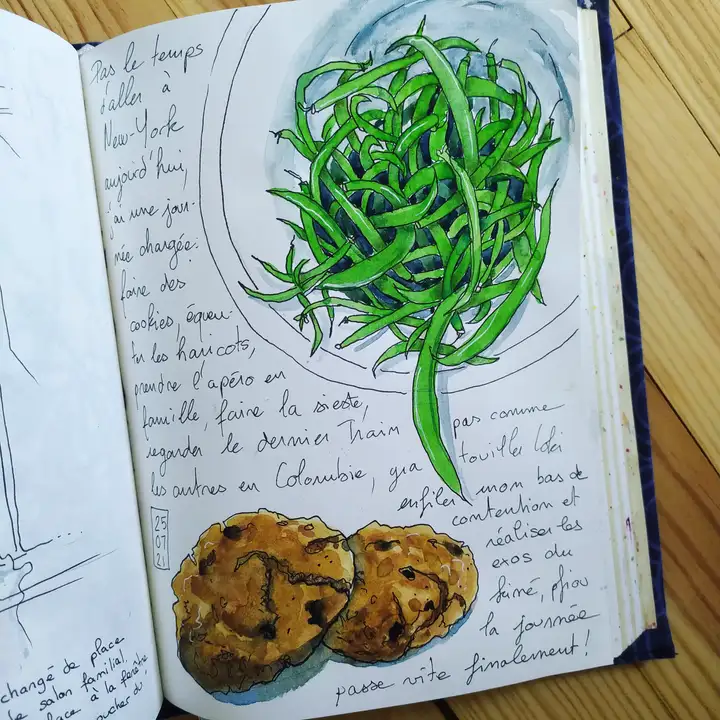 Pas le temps
d'aller à
New-York
aujourd'hui,
j'ai une jour-
née chargée:
faire des
cookies, équeu-
ter les haricots,
prendre l'apéro en
famille, faire la sieste,
regarder le dernier Train pas comme
les autres en Colombie, gratouiller Loki
enfiler mon bas de
contention et
réaliser les
exos du
kiné, pfiou
la journée
passe vite finalement!
25
07
21
changé de place
le salon familial.
face à la fenêtre